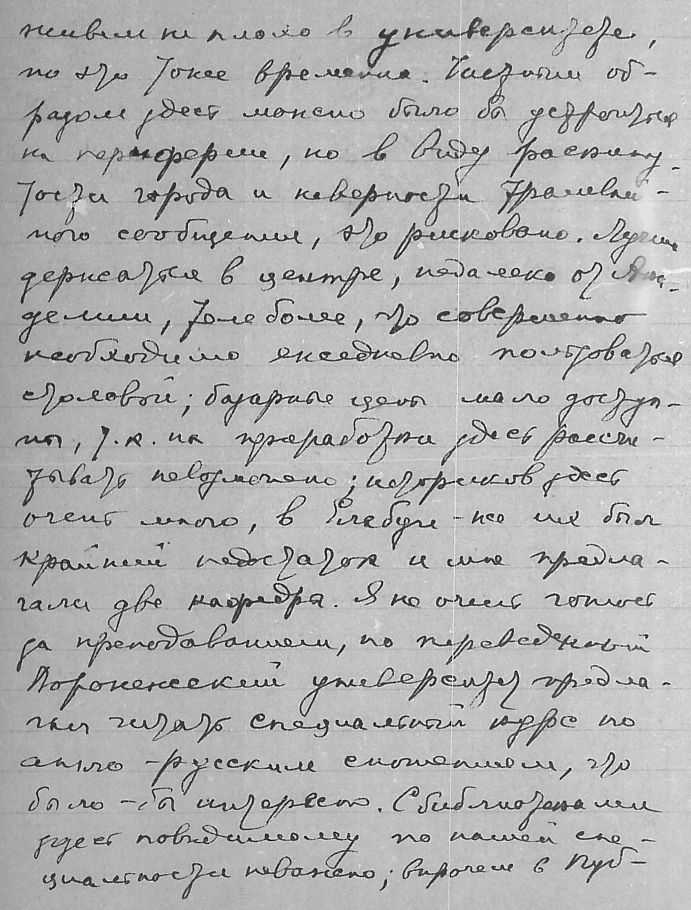 живем не плохо в университете,
но это тоже временно. Частным об-
разом здесь можно было бы устроиться
на периферии, но в виду раскину-
тости города и неверности трамвай-
ного сообщения, это рисковано. Лучше
держаться в центре, недалеко от Ака-
демии, тем более, что совершенно
необходимо ежедневно пользоваться
столовой; базарные цены мало доступ-
ны, т.к. на приработки здесь рассчи-
тывать невозможно; историков здесь
очень много, в Елабуге-же их был
крайний недостаток и мне предла-
гали две кафедры. Я не очень гонюсь
за преподаванием, но переведенный
Воронежский университет предла-
гал читать специальный курс по
англо-русским сношениям, что
было-бы интересно. С библиотеками
здесь повидимому по нашей спе-
циальности неважно; впрочем в Пуб-